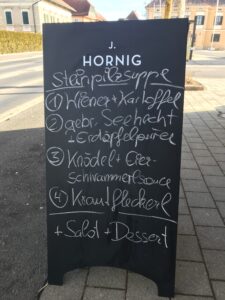 J.
HORNIG
Steinpilzsuppe
① Wiener + Kartoffel
② gebr. Seehecht
+ Erdäpfelpüree
③ Knödel + Eier-
schwammerlsauce
④ Krautfleckerl
+ Salat + Dessert